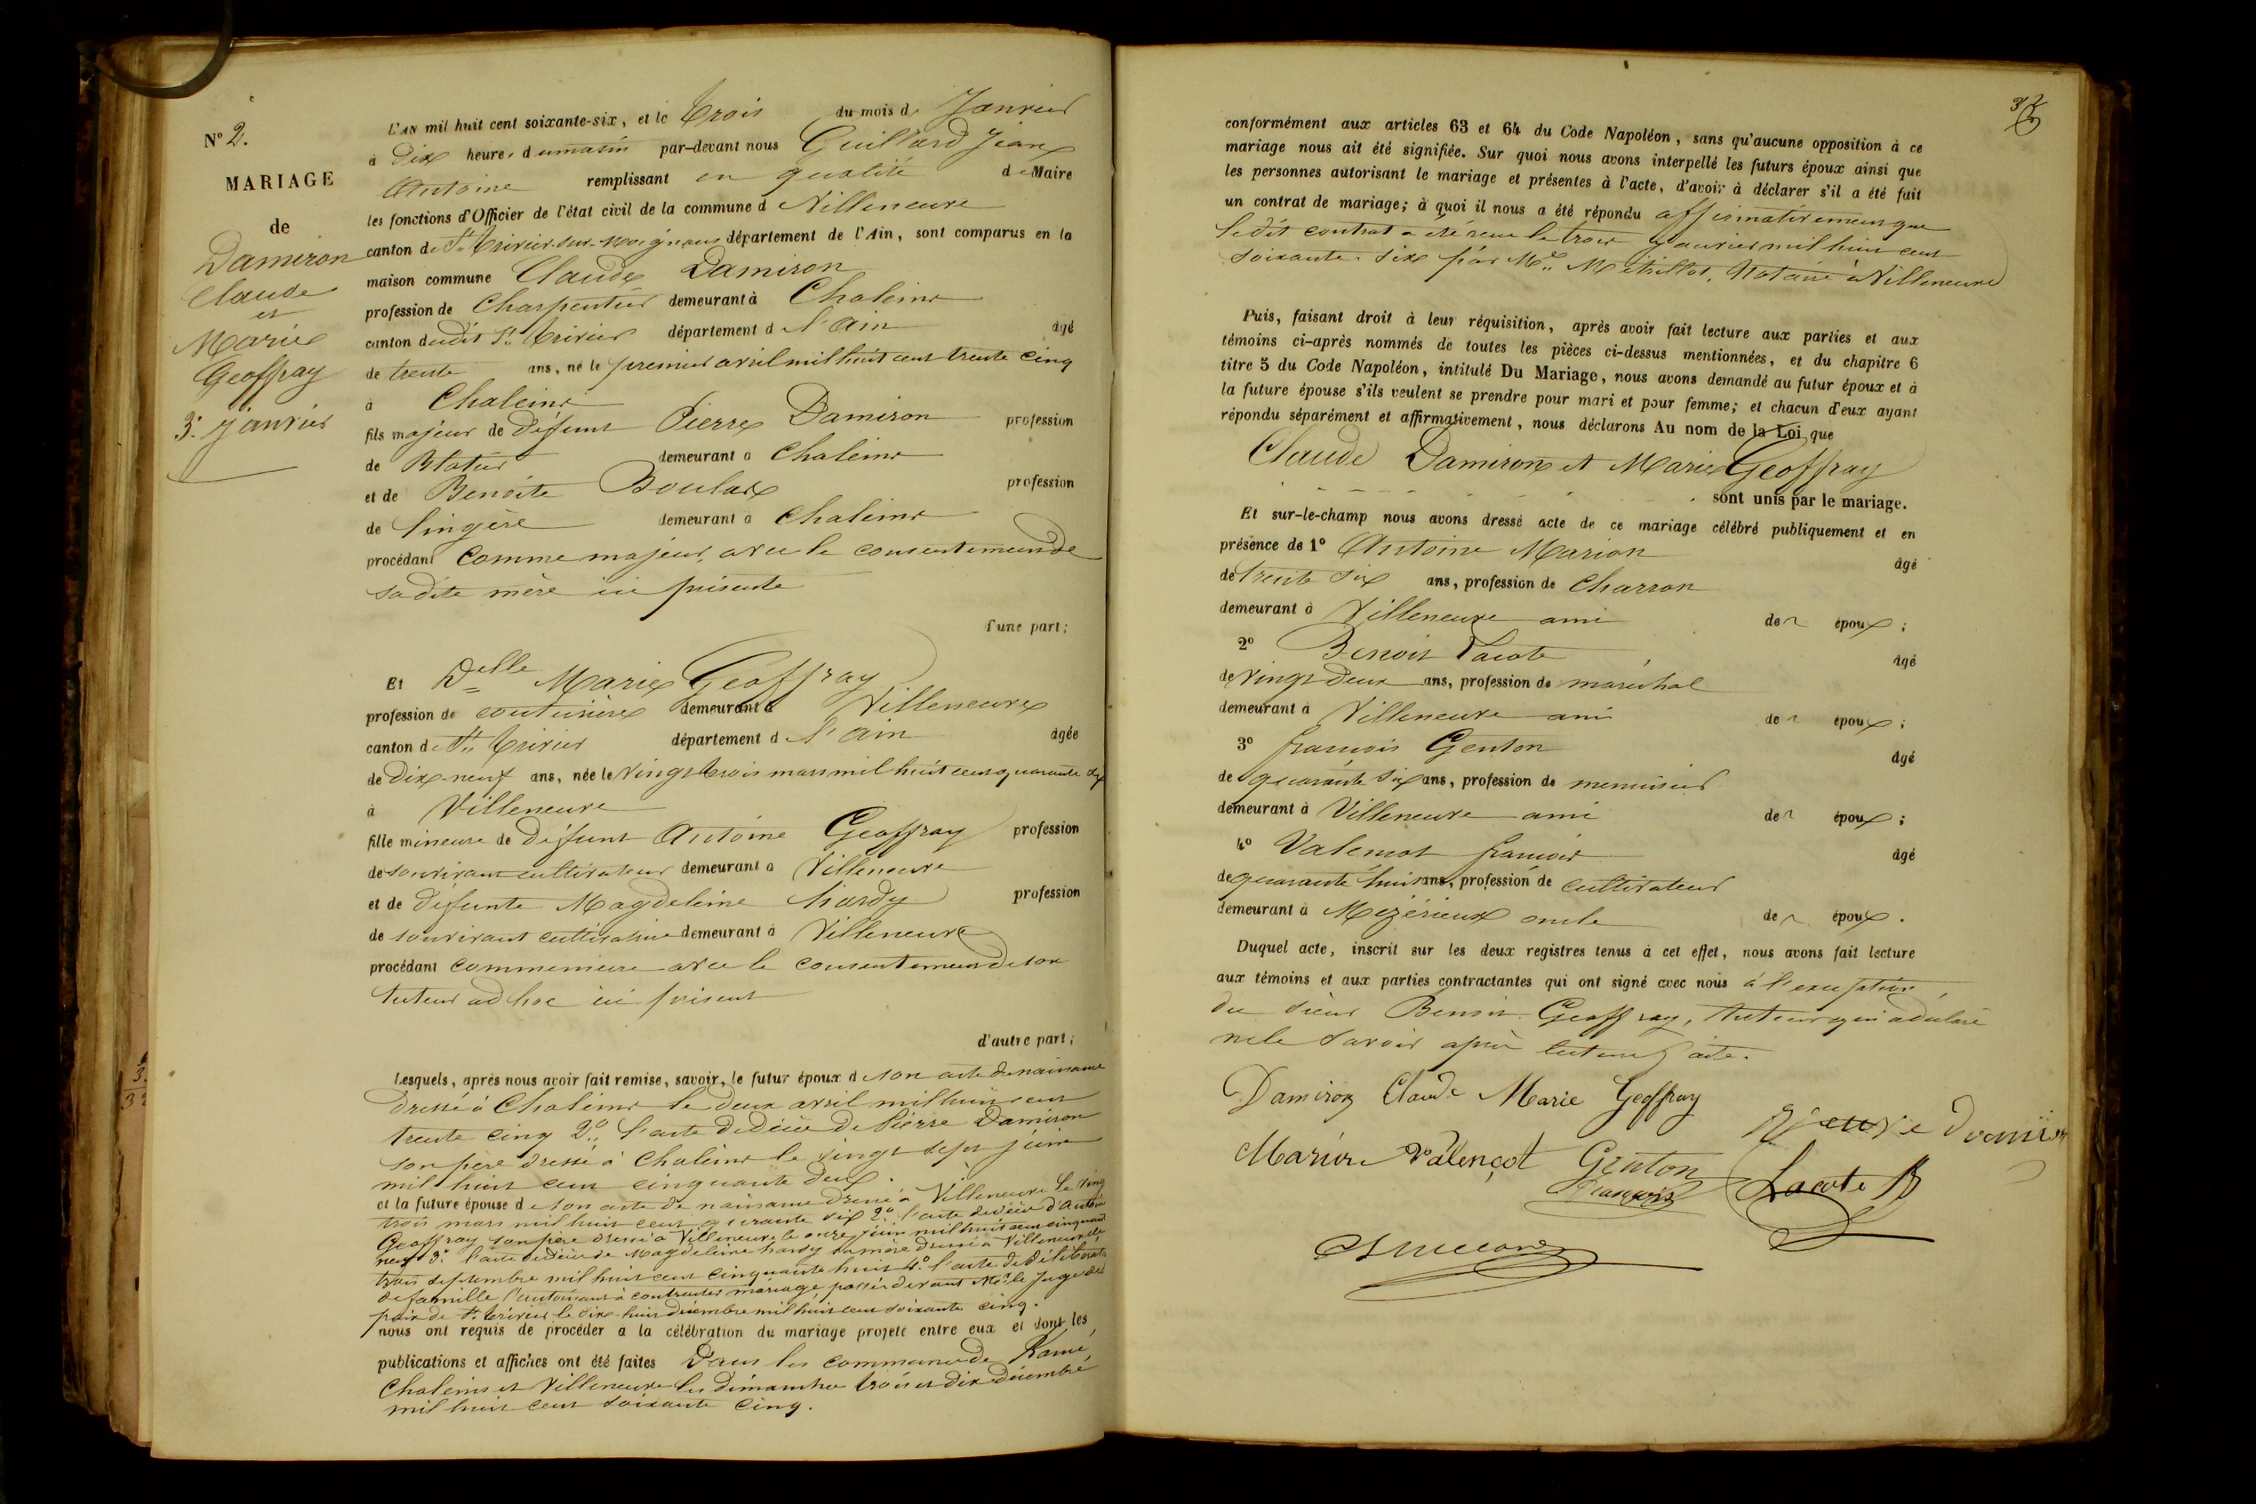 N° 2.
MARIAGE
de
Damiron
Claude
et
Marie
Geoffray
3. janvier
L'AN mil huit cent soixante-six, et le trois du mois de Janvier
à dix heures du matin par-devant nous Guillard Jean
Antoine remplissant en qualité de Maire
les fonctions d'Officier de l'état civil de la commune d Villeneuve
canton de St Trivier-sur-Moignans département de l'Ain, sont comparus en la
maison commune Claude Damiron
profession de Charpentier demeurant à Chaleins
canton dudit St Trivier département d l'Ain âgé
de trente ans, né le premier avril mil huit cent trente cinq
à Chaleins
fils majeur de défunt Pierre Damiron profession
de demeurant à Chaleins
et de Benoite profession
de lingère demeurant à Chaleins
procédant comme majeur, avec le consentement de
sa dite mère ici présente
d'une part;
Et Delle Marie Geoffray
profession de couturière demeurant à Villeneuve
canton de St Trivier département d l'Ain âgée
de dix neuf ans, née le vingt trois mars mil huit cent quarante six
à Villeneuve
fille mineure de défunt Antoine Geoffray profession
de son vivant cultivateur demeurant à Villeneuve
et de défunte Magdeleine hardy profession
de son vivant cultivatrice demeurant à Villeneuve
procédant comme mineure avec le consentement de son
tuteur ad hoc ici présent
d'autre part;
Lesquels, après nous avoir fait remise, savoir, le futur époux d e son acte de naissance
dressé à Chaleins le deux avril mil huit cent
trente cinq 2° l'acte de décès de Pierre Damiron
son père dressé à Chaleins le vingt sept juin
mil huit cent cinquante deux.
et la future épouse d e son acte de naissance dressé à Villeneuve le vingt
trois mars mil huit cent quarante six 2° l'acte de décès d'Antoine
Geoffray son père dressé à Villeneuve le onze juin mil huit cent cinquante
neuf 3° l'acte de décès de Magdeleine hardy sa mère dressé à Villeneuve le
trois septembre mil huit cent cinquante huit 4° l'acte de délibération
de famille l'autorisant à contracter mariage, passé devant Mr le Juge de
paix de St Trivier le dix huit décembre mil huit cent soixante cinq.
nous ont requis de procéder à la célébration du mariage projeté entre eux et dont les
publications et affiches ont été faites dans les communes de
Chaleins et Villeneuve les dimanches trois et dix décembre
mil huit cent soixante cinq.
conformément aux articles 63 et 64 du Code Napoléon, sans qu'aucune opposition à ce
mariage nous ait été signifiée. Sur quoi nous avons interpellé les futurs époux ainsi que
les personnes autorisant le mariage et présentes à l'acte, d'avoir à déclarer s'il a été fait
un contrat de mariage; à quoi il nous a été répondu affirmativement que
ledit contrat a été reçu le trois janvier mil huit cent
soixante six par Me Notaire à Villeneuve
Puis, faisant droit à leur réquisition, après avoir fait lecture aux parties et aux
témoins ci-après nommés de toutes les pièces ci-dessus mentionnées, et du chapitre 6
titre 5 du Code Napoléon, intitulé Du Mariage, nous avons demandé au futur époux et à
la future épouse s'ils veulent se prendre pour mari et pour femme; et chacun d'eux ayant
répondu séparément et affirmativement, nous déclarons Au nom de la Loi que
Claude Damiron et Marie Geoffray
sont unis par le mariage.
Et sur-le-champ nous avons dressé acte de ce mariage célébré publiquement et en
présence de 1° Antoine Marion âgé
de trente six ans, profession de Charron
demeurant à Villeneuve ami des époux;
2° Benoit Lacote âgé
de vingt deux ans, profession de maréchal
demeurant à Villeneuve ami des époux;
3° françois Genton âgé
de quarante six ans, profession de menuisier
demeurant à Villeneuve ami des époux;
4° Valençot françois âgé
de quarante huit ans, profession de cultivateur
demeurant à Mizérieux oncle des époux.
Duquel acte, inscrit sur les deux registres tenus à cet effet, nous avons fait lecture
aux témoins et aux parties contractantes qui ont signé avec nous à l'exception
du sieur Benoit Geoffray, tuteur qui a déclaré
ne le savoir après lecture faite.
Damiron Claude Marie Geoffray
Marion Valençot Genton
françois Lacote B